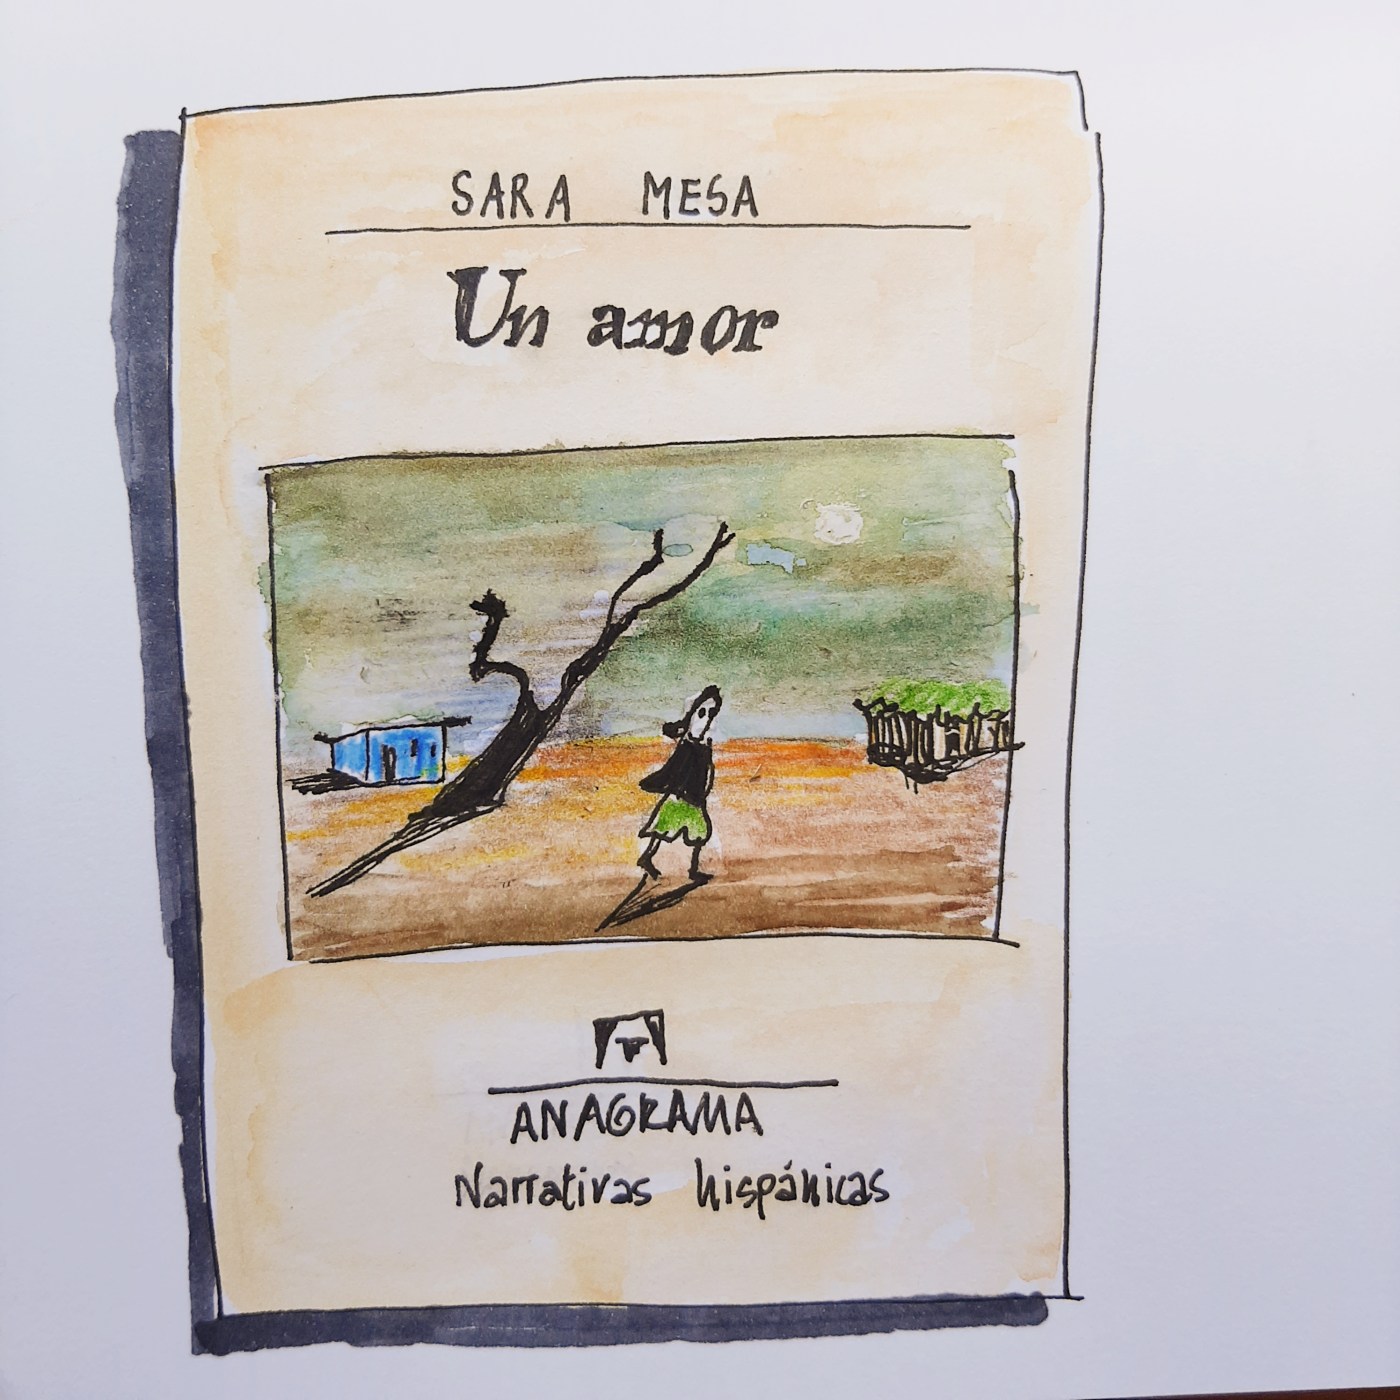 SARA MESA
Un amor
ANAGRAMA
Narrativas hispánicas